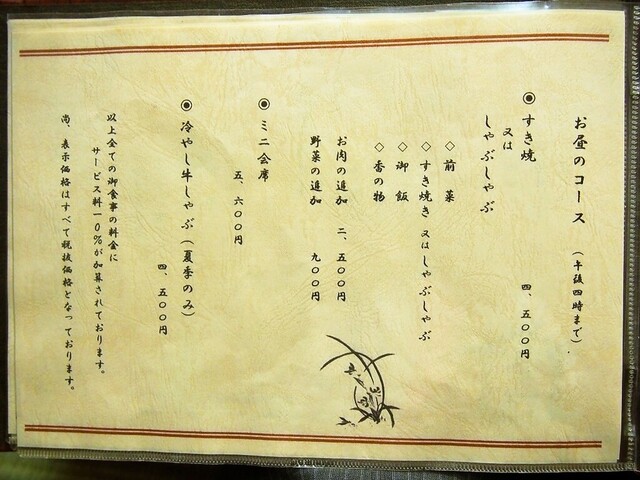 お昼のコース (午後四時まで)
◉すき焼
又は
しゃぶしゃぶ
四、五〇〇円
◇前菜
◇すき焼き 又は しゃぶしゃぶ
◇御飯
◇香の物
お肉の追加 二、五〇〇円
野菜の追加 九〇〇円
◉ミニ会席
五、六〇〇円
◉冷やし牛しゃぶ(夏季のみ)
四、五〇〇円
以上全ての御食事の料金に
サービス料一〇%が加算されております。
尚、表示価格はすべて税抜価格となっております。